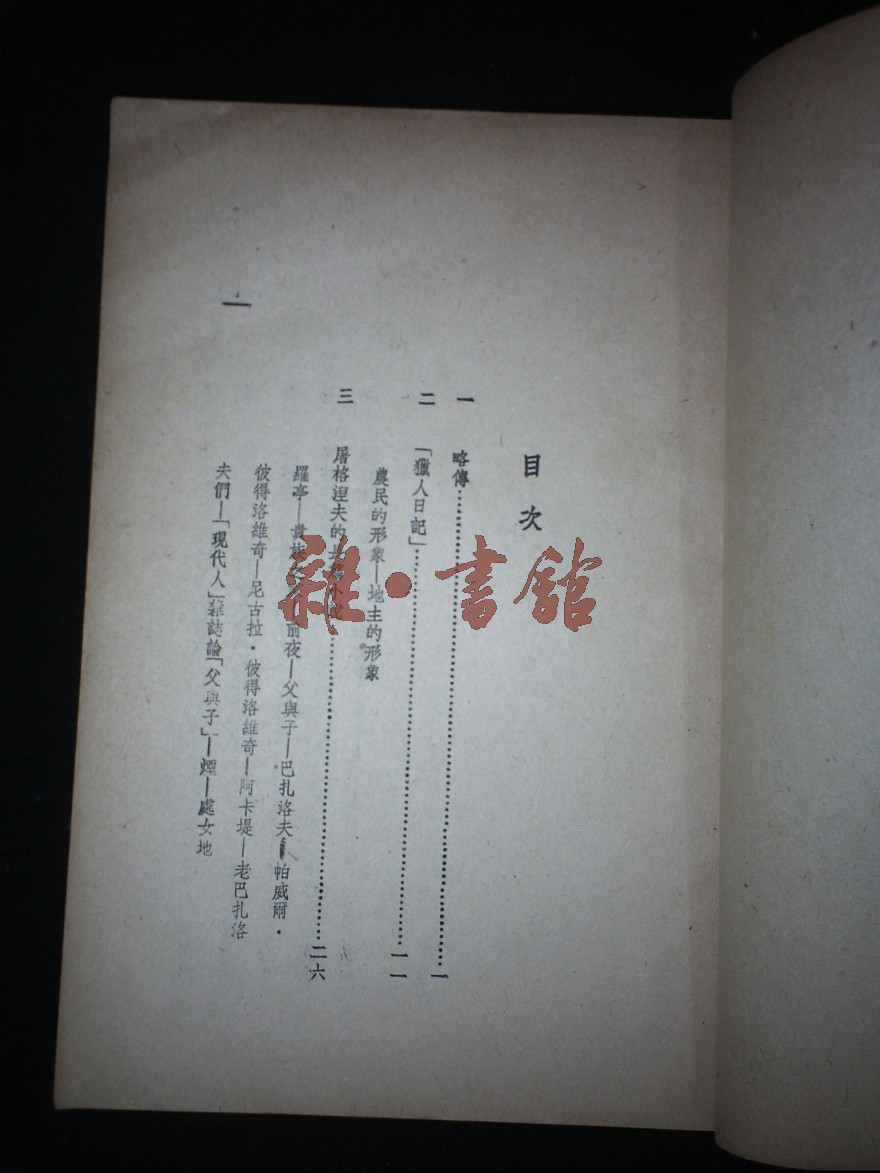 目次
一 略傳……一
二 「獵人日記」……一一
農民的形象—地主的形象
三 屠格涅夫的長篇小說……二六
羅亭—貴族 前夜—父與子—巴扎洛夫—帕威爾·
彼得洛維奇—尼古拉·彼得洛維奇—阿卡堤—老巴扎洛
夫們—「現代人」雜誌論「父與子」—煙—處女地
一
雜·書館